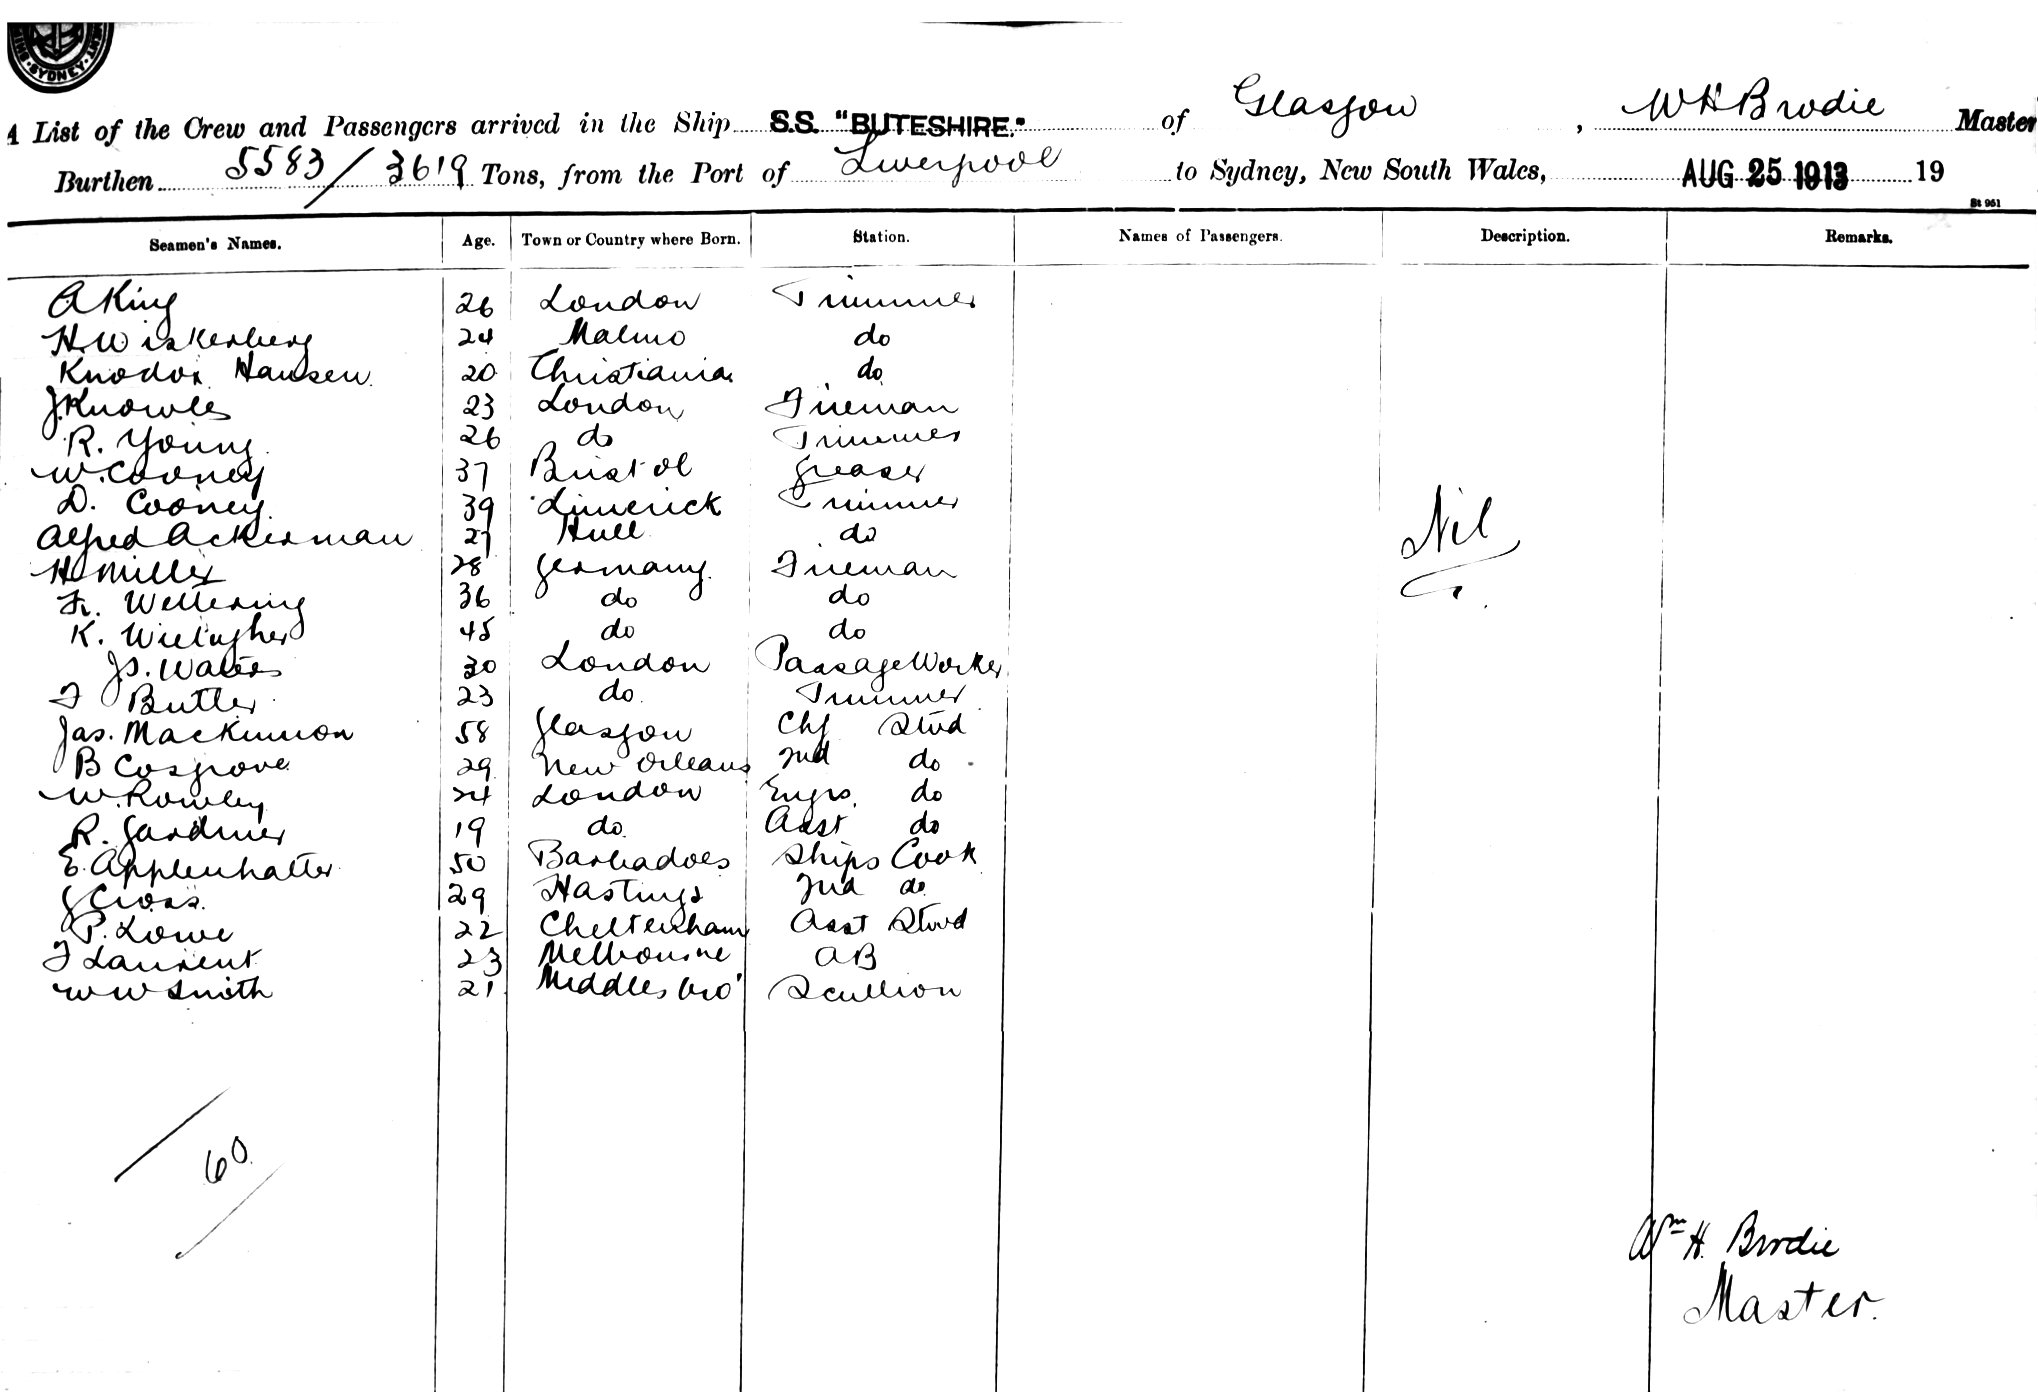 SYDNEY
A List of the Crew and Passengers arrived in the Ship S.S. "BUTESHIRE." of Glasgow, W H Brodie Master
Burthen 5583/3619 Tons, from the Port of Liverpool to Sydney, New South Wales, AUG 25 1913 19
St 951
Seamen's Names. Age. Town or Country where Born. Station. Names of Passengers. Description. Remarks.
A King 26 London Trimmer
H. Wiskerberg 24 Malmo do
Hansen 20 Christiania do
J. Knowles 23 London Fireman
R. Young 26 do Trimmer
W. Cooney 37 Bristol Greaser
D. Cooney 39 Limerick Trimmer
Alfred Ackerman 27 Hull do
Nil
H Miller 28 Germany Fireman
Fr. Wettering 36 do do
K. 45 do do
Js. Walters 30 London Passage Worker
F Butler 23 do Trimmer
Jas. Mackinnon 58 Glasgow Chf Stwd
B Cosgrove 29 New Orleans 2nd do
W. Rowley 24 London Engrs. do
R. Gardiner 19 do Asst do
E. Applewhatter 50 Barbadoes Ships Cook
J Cross. 29 Hastings 2nd do
P. Lowe 22 Cheltenham Asst Stwd
F Laurent 23 Melbourne AB
W W Smith 21 Middlesbro' Scullion
60
Wm H. Brodie
Master.